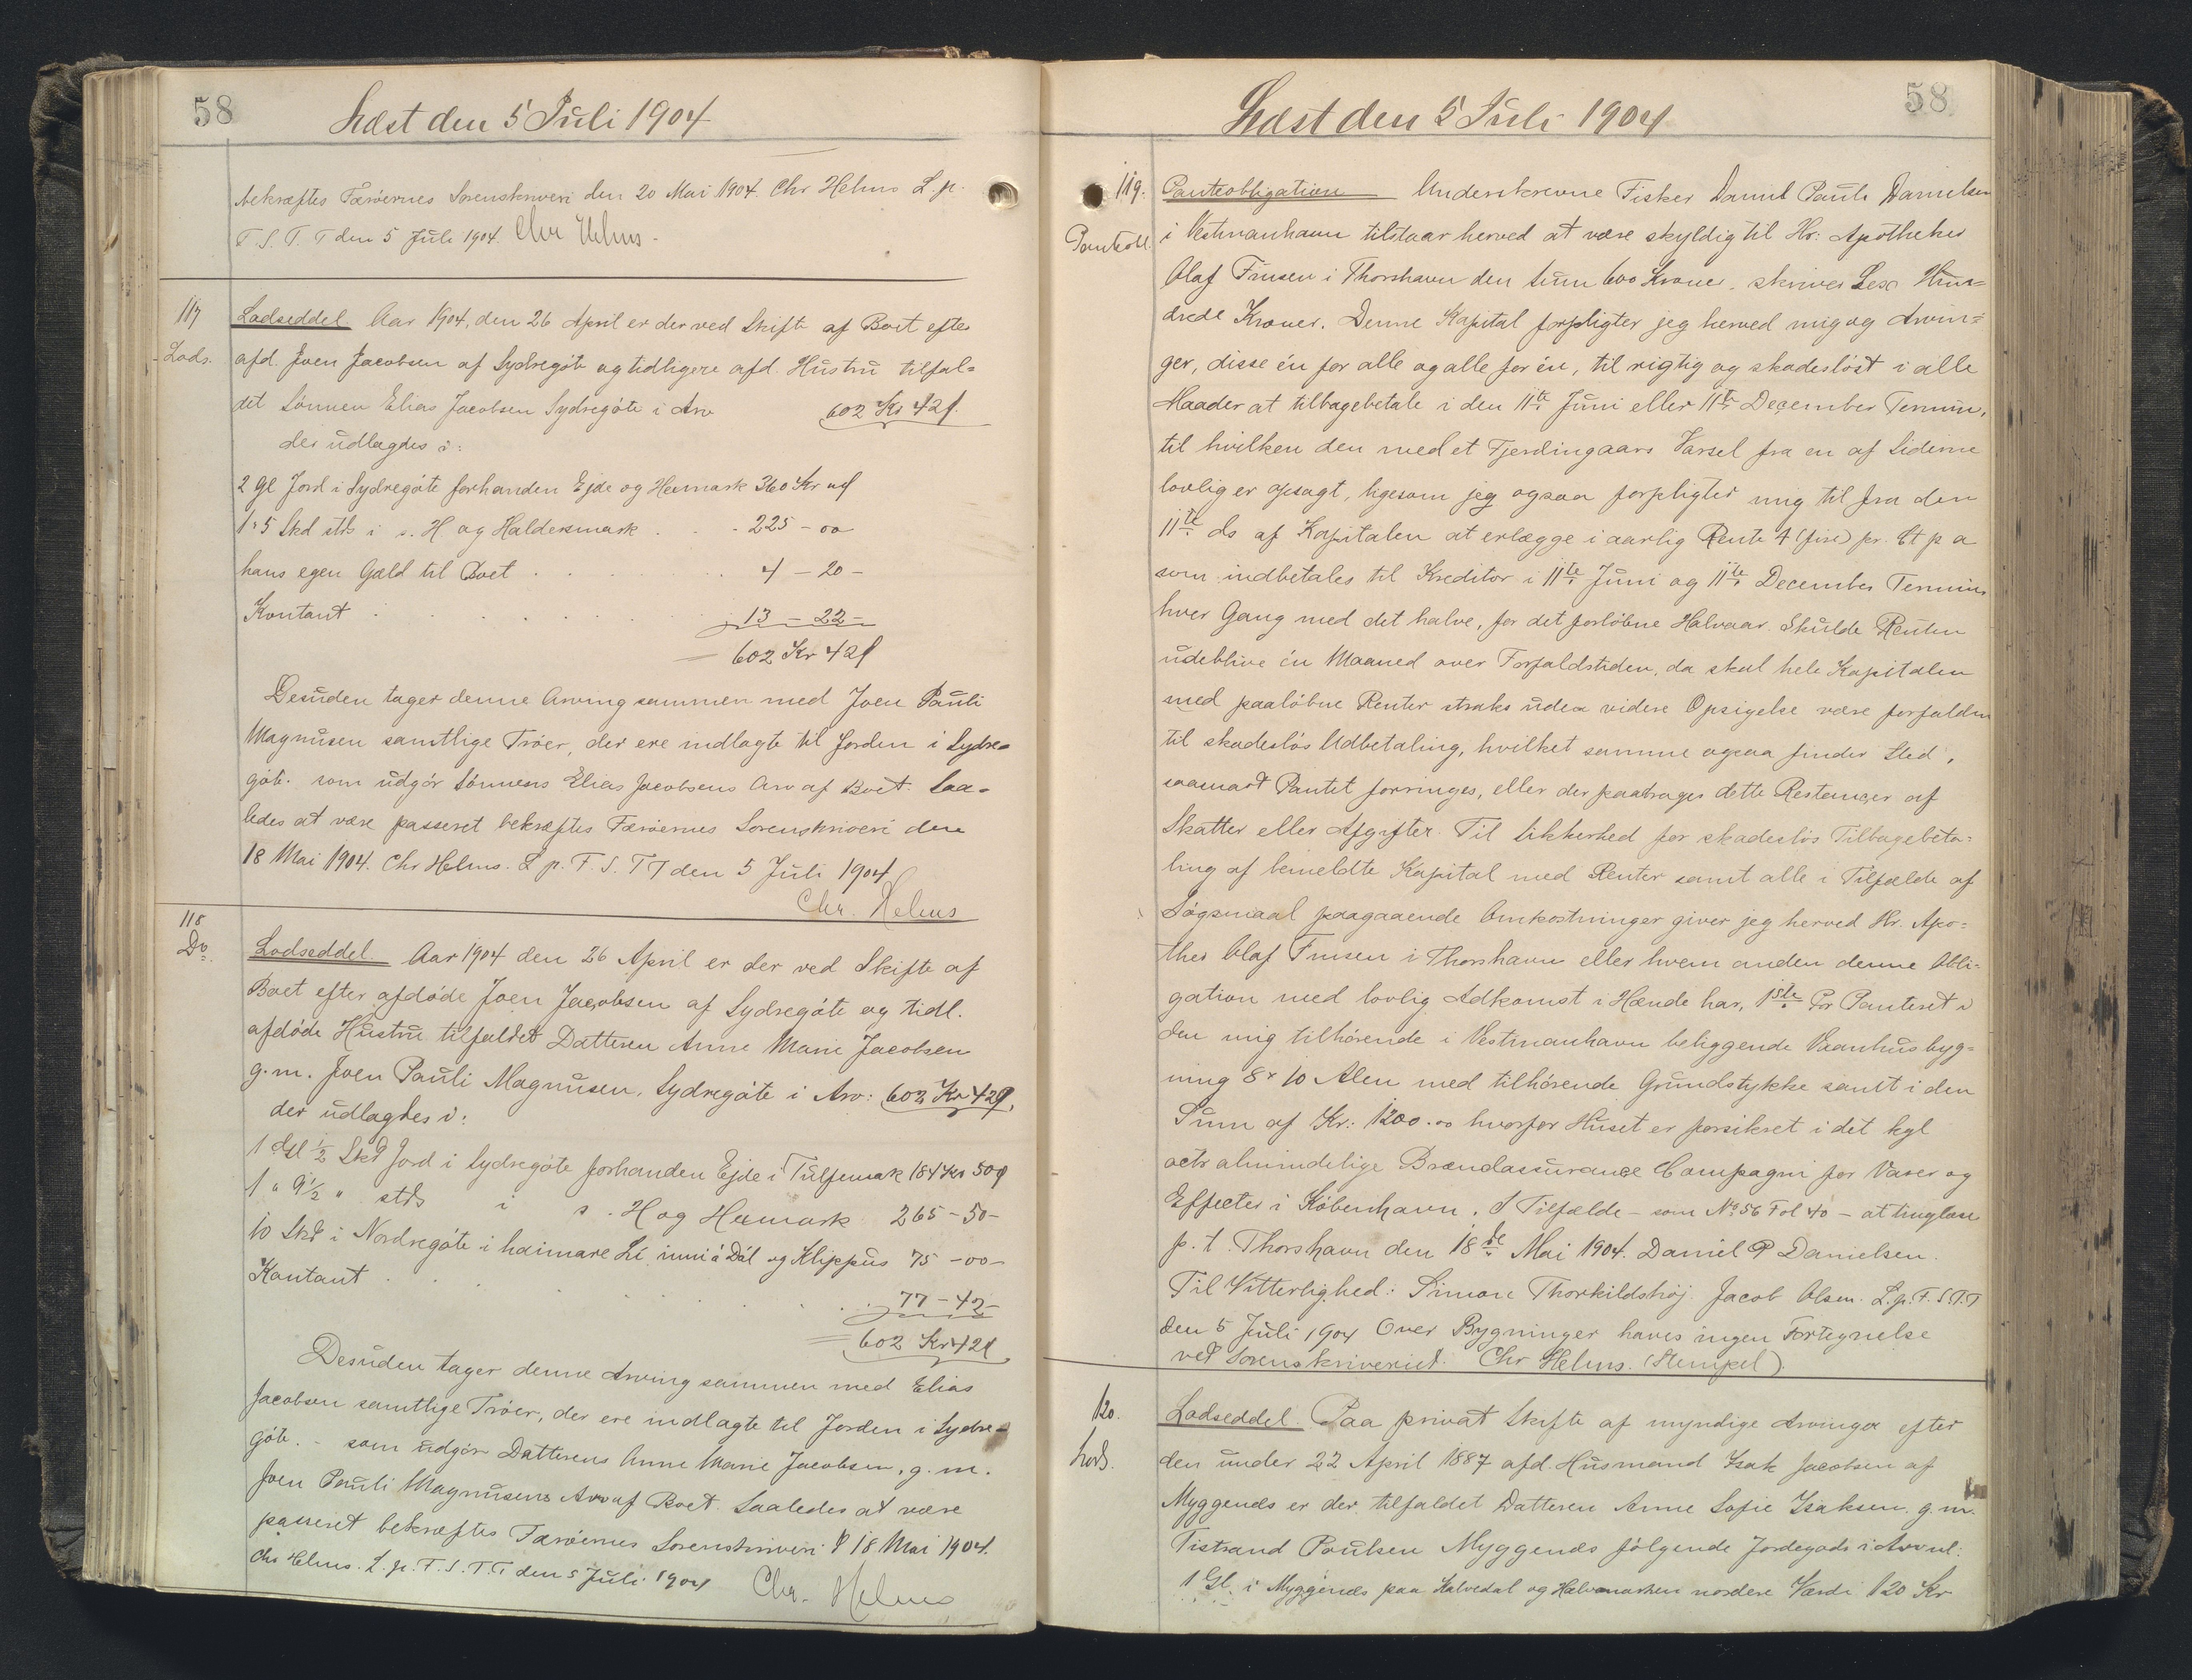 58
Læst den 5 Juli 1904
bekræftes Færøernes Sorenskriveri den 20 Mai 1904. Chr Helms L.p.
F. S. T. T den 5 Juli 1904. Chr Helms.
117
Lods.
Lodseddel Aar 1904, den 26 April er der ved Skifte af Boet efter
afd. Joen Jacobsen af Sydregöte og tidligere afd. Hustru tilfal=
det Sönnen Elias Jacobsen Sydregöte i Arv 602 Kr 42 ø.
der udlagdes i:
2 Gl Jord i Sydregöte forhanden Ejde og Heimark 360 Kr
1 " 5 Skd stds i s. H og Haldersmark . . 225 - 00
hans egen Gæld til Boet . . . . 4 - 20 -
Kontant . . . . . . 13 - 22 -
= 602 Kr 42 ø
Desuden tager denne Arving sammen med Joen Pauli
Magnusen samtlige Tröer, der ere indlagte til Jorden i Sydre=
göte. som udgör Sönnens Elias Jacobsens Arv af Boet. Saa=
ledes at være passeret bekræftes Færöernes Sorenskriveri den
18 Mai 1904. Chr Helms. L p. F. S. T T den 5 Juli 1904
Chr. Helms
118
Do.
Lodseddel. Aar 1904 den 26 April er der ved Skifte af
Boet efter afdöde Joen Jacobsen af Sydregöte og tidl.
afdöde Hustru tilfaldet Datteren Anne Marie Jacobsen
g.m. Joen Pauli Magnusen, Sydregöte i Arv: 602 Kr 42 ø,
der udlagdes i:
1 Gl ½ Skd Jord i Sydregöte forhanden Ejde i 184 Kr 50 ø
1 " 9½ " stds i s. H og Heimark 265 - 50 -
10 Skd i Nordregöte i haimare Lí inni á Dal og Klippus 75 - 00 -
Kontant . . . . . . 77 - 42 -
= 602 Kr 42 ø
Desuden tager denne Arving sammen med Elias
Jacobsen samtlige Tröer, der ere indlagte til Jorden i Sydre=
göte. - som udgör Datterens Anne Marie Jacobsen, g.m.
Joen Pauli Magnusens Arv af Boet. Saaledes at være
passeret bekræftes Færöernes Sorenskriveri d 18 Mai 1904.
Chr Helms. L. p. F. S. T. T den 5 Juli 1904 Chr. Helms
58
Læst den 5 Juli 1904
119.
Pantobl.
Panteobligation Underskrevne Fisker Daniel Pauli Danielsen
i Vestmanhavn tilstaar herved at være skyldig til Hr: Apotheker
Olaf Finsen i Thorshavn den Sum 600 Kroner, skriver Sex Hun=
drede Kroner. Denne Kapital forpligter jeg herved mig og Arvin=
ger, disse én for alle og alle for én, til rigtig og skadeslöst i alle
Maader at tilbagebetale i den 11te Juni eller 11te December Termin,
til hvilken den med et Fjerdingaars Varsel fra en af Siderne
lovlig er opsagt, ligesom jeg ogsaa forpligter mig til fra den
11te ds af Kapitalen at erlægge i aarlig Rente 4 (fire) pr. Ct p a
som indbetales til Kreditor i 11te Juni og 11te December Termin
hver Gang med det halve, for det forlöbne Halvaar. Skulde Renten
udeblive én Maaned over Forfaldstiden, da skal hele Kapitalen
med paalöbne Renter straks uden videre Opsigelse være forfalden
til skadeslös Udbetaling, hvilket samme ogsaa finder Sted,
saasnart Pantet forringes, eller der paadrages dette Restancer af
Skatter eller Afgifter. Til Sikkerhed for skadeslös Tilbagebeta=
ling af bemeldte Kapital med Renter samt alle i Tilfælde af
Sögsmaal paagaaende Omkostninger giver jeg herved Hr. Apo=
theker Olaf Finsen i Thorshavn eller hvem anden denne Obli=
gation med lovlig Adkomst i Hænde har, 1ste Pr Panteret i
den mig tilhörende i Vestmanhavn beliggende Vaanhusbyg=
ning 8 x 10 Alen med tilhörende Grundstykke samt i den
Sum af Kr: 1200.00 hvorfor Huset er forsikret i det kgl
octr almindelige Brandassurance Compagni for Varer og
Effecter i Köbenhavn. I Tilfælde - som No 56 Fol 40 - at tinglæse
p. t. Thorshavn den 18de Mai 1904. Daniel P Danielsen.
Til Vitterlighed: Simon Thorkildshöj. Jacob Olsen. L.p. F. S. T. T
den 5 Juli 1904 Over Bygninger haves ingen Fortegnelse
ved Sorenskriveriet. Chr Helms. (Stempel).
120.
Lods.
Lodseddel. Paa privat Skifte af myndige Arvinger efter
den under 22 April 1887 afd. Husmand Isak Jacobsen af
Myggenæs er der tilfaldet Datteren Anne Sofie Isaksen. g.m.
Tistrand Poulsen Myggenæs fölgende Jordegods i Arv
1 Gl. i Myggenæs paa Kalvedal og Halvmarken nordere Værdi 120 Kr